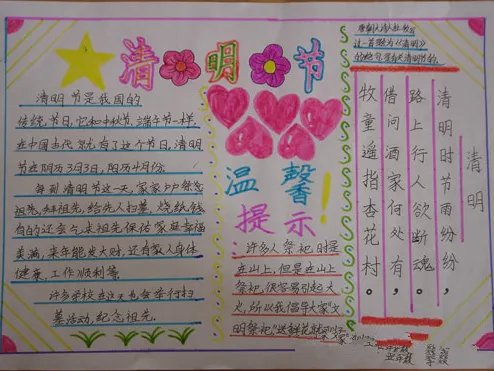 清明节
清明节是我国的
传统节日,它和中秋节、端午节一样,
在中国古代就有了这个节日,清明
节在阴历3月3日,阳历4月份。
每到清明节这一天,家家户户祭忽
祖先,拜祖先,给先人扫墓,烧纸钱,
有的还会乞求祖先保佑家庭幸福
美满,来年能发大财,还有家人身体
健康,工作顺利等
许多学校在这天也会举行扫
墓活动,纪念祖先.
温馨
提示!
许多人祭祀时是
在山上,但是在山上
祭祀,很容易引起大
火,所以我倡导大家“文
明祭祀”
这一首题为《清明》
清明
清明时节雨纷纷,
路上行人欲断魂。
借问酒家何处有,
牧童遥指杏花村。